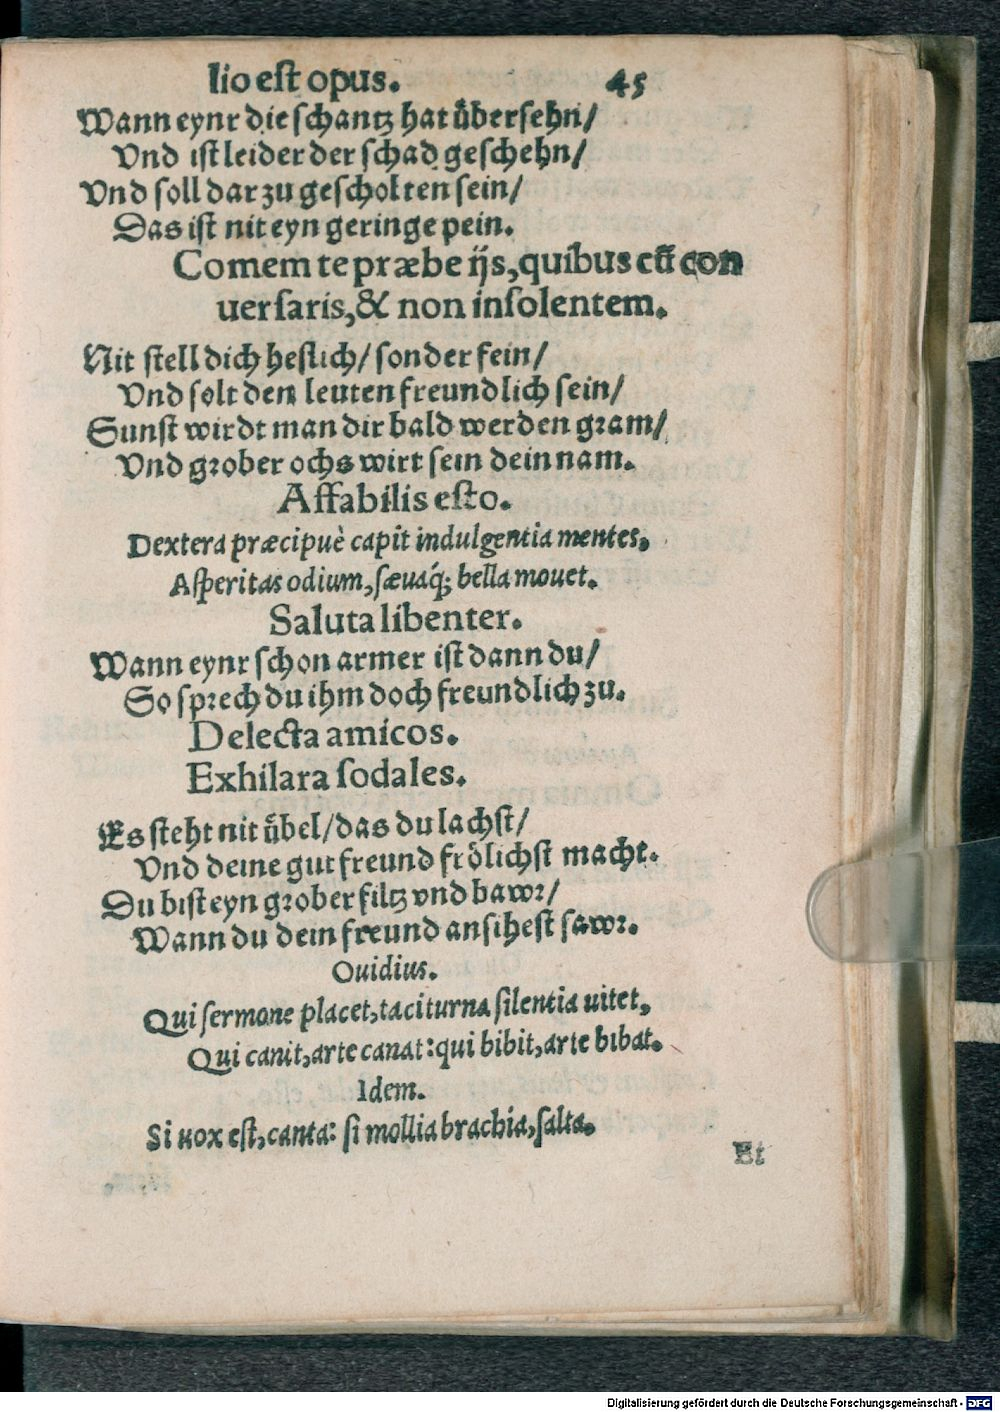 lio est opus. 45
Wann eynr die schantz hat uͤbersehn/
Vnd ist leider der schad geschehn/
Vnd soll dar zu gescholten sein/
Das ist nit eyn geringe pein.
Comem te præbe ijs, quibus cũ con
uersaris, & non insolentem.
Nit stell dich heslich/ sonder fein/
Vnd solt den leuten freundlich sein/
Sunst wirdt man dir bald werden gram/
Vnd grober ochs wirt sein dein nam.
Affabilis esto.
Dextera præcipuè capit indulgentia mentes,
Asperitas odium, sæuaq́; bella mouet.
Saluta libenter.
Wann eynr schon armer ist dann du/
So sprech du ihm doch freundlich zu.
Delecta amicos.
Exhilara sodales.
Es steht nit uͤbel/ das du lachst/
Vnd deine gut freund froͤlichst macht.
Du bist eyn grober filtz vnd bawr/
Wann du dein freund ansihest sawr.
Ouidius.
Qui sermone placet, taciturna silentia uitet,
Qui canit, arte canat: qui bibit, arte bibat.
Idem.
Si uox est, canta: si mollia brachia, salta.
Et
Digitalisierung gefördert durch die Deutsche Forschungsgemeinschaft - DFG